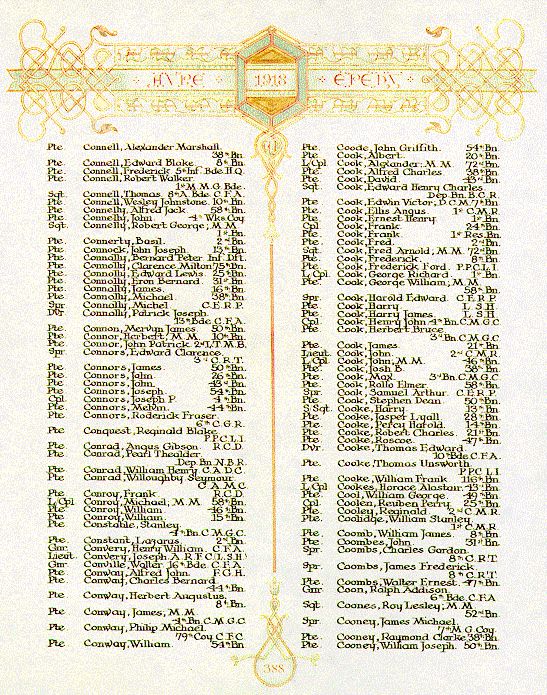 HYPE 1918 ÉPEHY
Pte. Connell, Alexander Marshall.
38th Bn.
Pte. Connell, Edward Blake 8th Bn.
Pte. Connell, Frederick 5th Inf. Bde. H.Q.
Pte. Connell, Robert Walker.
1st M.M.G. Bde.
Sgt. Connell, Thomas 8th A. Bde. C.F.A.
Pte. Connell, Wesley Johnstone. 10th Bn.
Pte. Connelly, Alfred Jack. 58th Bn.
Pte. Connelly, John 4th Wks. Coy
Sgt. Connelly, Robert George; M.M.
1st Bn.
Pte. Connerty, Basil. 2nd Bn.
Pte. Connock, John Joseph. 13th Bn.
Pte. Connolly, Bernard Peter Inf. Dft.
Pte. Connolly, Clarence Milton 75th Bn.
Pte. Connolly, Edward Lewis 25th Bn.
Pte. Connolly, Eron Bernard 31st Bn.
Pte. Connolly, James. 16th Bn.
Pte. Connolly, Michael. 38th Bn.
Spr. Connolly, Michel C.E.R.P.
Dvr. Connolly, Patrick Joseph.
13th Bde. C.F.A.
Pte. Connon, Mervyn James 50th Bn.
Pte. Connor, Herbert; M.M. 10th Bn.
Pte. Connor, John Patrick 2nd L.T.M.B.
Spr. Connors, Edward Clarence.
3rd C.R.T.
Pte. Connors, James 50th Bn.
Pte. Connors, John 26th Bn.
Pte. Connors, John. 43rd Bn.
Pte. Connors, Joseph. 54th Bn.
Cpl. Connors, Joseph P. 4th Bn.
Pte. Connors, Melvin. 44th Bn.
Pte. Connors, Roderick Fraser.
6th C.G.R.
Pte. Conquest, Reginald Blake.
P.P.C.L.I.
Pte. Conrad, Angus Gibson. R.C.D.
Pte. Conrad, Pearl Thealder.
Dep. Bn. N.B.R.
Pte. Conrad, William Henry C.A.D.C.
Pte. Conrad, Willoughby Seymour.
C.A.M.C.
Pte. Conroy, Frank R.C.D.
L/Cpl. Conroy, Michael; M.M. 58th Bn.
Pte. Conroy, William. 46th Bn.
Pte. Conroy, William. 15th Bn.
Pte. Constable, Stanley.
4th Bn. C.M.G.C.
Pte. Constant, Lazarus 2nd Bn.
Gnr. Convery, Henry William. C.F.A.
Lieut. Convery, Joseph A. R.F.C. L.S.H.
Gnr. Conville, Walter 16th Bde. C.F.A.
Pte. Conway, Alfred John. F.G.H.
Pte. Conway, Charles Bernard.
44th Bn.
Pte. Conway, Herbert Augustus.
8th Bn.
Pte. Conway, James; M.M.
4th Bn. C.M.G.C.
Pte. Conway, Philip Michael.
79th Coy. C.F.C.
Pte. Conway, William. 54th Bn
Pte. Coode, John Griffith. 54th Bn.
Pte. Cook, Albert. 20th Bn.
L/Cpl. Cook, Alexander; M.M. 72nd Bn.
Pte. Cook, Alfred Charles. 38th Bn.
Pte. Cook, David. 43rd Bn.
Sgt. Cook, Edward Henry Charles.
Dep. Bn. B.C.R.
Pte. Cook, Edwin Victor; D.C.M. 7th Bn.
Pte. Cook, Ellis Angus. 1st C.M.R.
Pte. Cook, Ernest Henry. 1st Bn.
Cpl. Cook, Frank. 24th Bn.
Pte. Cook, Frank. 1st Res. Bn.
Pte. Cook, Fred. 2nd Bn.
Sgt. Cook, Fred Arnold; M.M. 72nd Bn.
Pte. Cook, Frederick. 8th Bn.
Pte. Cook, Frederick Ford P.P.C.L.I.
L/Cpl. Cook, George Richard. 1st Bn.
Pte. Cook, George William; M.M.
58th Bn.
Spr. Cook, Harold Edward C.E.R.P.
Pte. Cook, Harry. L.S.H.
Pte. Cook, Harry James L.S.H.
Cpl. Cook, Henry John 4th Bn. C.M.G.C.
Pte. Cook, Herbert Bruce.
3rd Bn. C.M.G.C.
Pte. Cook, James. 21st Bn.
Lieut. Cook, John. 2nd C.M.R.
L/Cpl. Cook, John; M.M. 46th Bn.
Pte. Cook, Josh B. 38th Bn.
Pte. Cook, Max 3rd Bn. C.M.G.C.
Pte. Cook, Rollo Elmer. 58th Bn.
Spr. Cook, Samuel Arthur. C.E.R.P.
Pte. Cook, Stephen Dean 50th Bn.
S/Sgt. Cooke, Harry. 13th Bn.
Pte. Cooke, Jasper Lyall. 28th Bn.
Pte. Cooke, Percy Harold. 14th Bn.
Pte. Cooke, Robert Charles. 21st Bn.
Pte. Cooke, Roscoe. 47th Bn.
Dvr. Cooke, Thomas Edward
10th Bde. C.F.A.
Pte. Cooke, Thomas Unsworth.
P.P.C.L.I.
Pte. Cooke, William Frank 116th Bn.
L/Cpl. Cookes, Horace Alastair 13th Bn.
Pte. Cool, William George. 49th Bn.
Cpl. Coolen, Reuben Perry 25th Bn.
Pte. Cooley, Reginald 2nd C.M.R.
Pte. Coolidge, William Stanley.
1st C.M.R.
Pte. Coomb, William James 8th Bn.
Pte. Coombes, John. 31st Bn.
Spr. Coombs, Charles Gordon.
8th C.R.T.
Spr. Coombs, James Frederick
8th C.R.T.
Pte. Coombs, Walter Ernest. 47th Bn.
Gnr. Coon, Ralph Addison.
6th Bde. C.F.A.
Sgt. Coones, Roy Lesley; M.M.
52nd Bn.
Spr. Cooney, James Michael.
7th M.G. Coy.
Pte. Cooney, Raymond Clarke 38th Bn.
Pte. Cooney, William Joseph. 50th Bn.
388